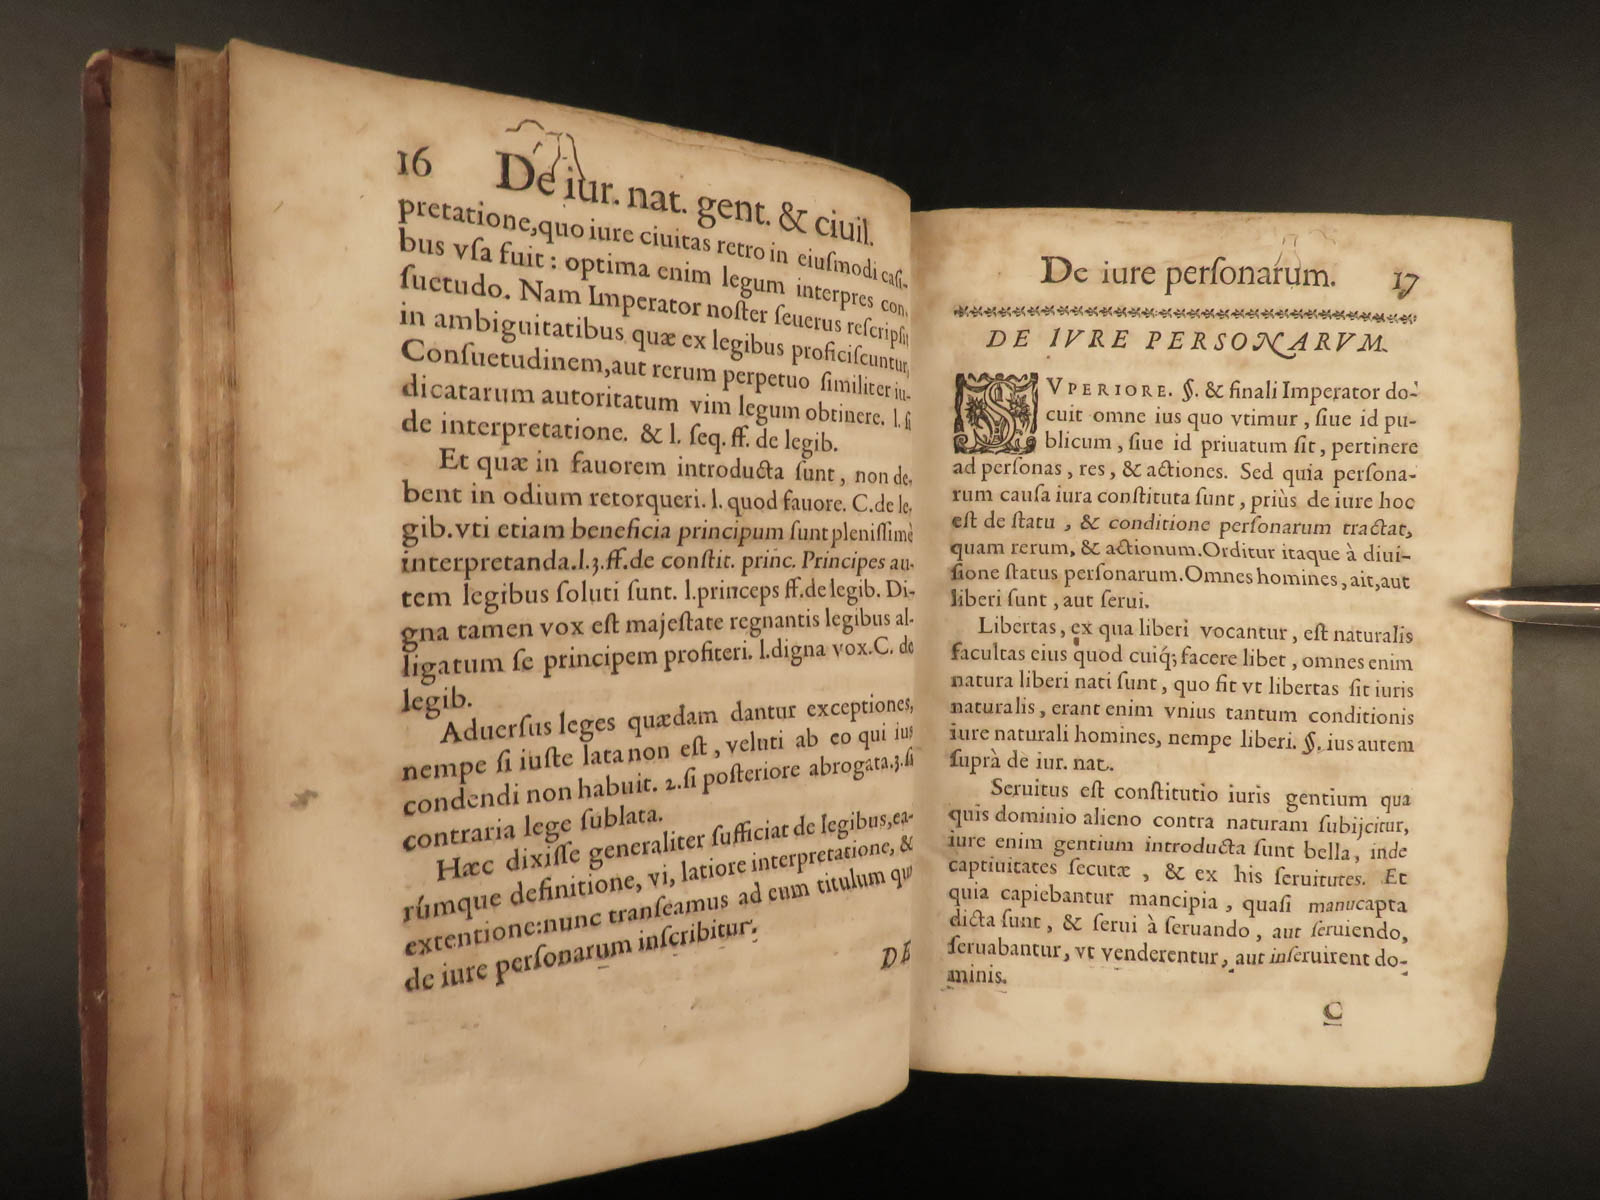 16 De iur. nat. gent. & ciuil.
pretatione,quo iure ciuitas retro in eiuſmodi caſi-
bus vſa fuit : optima enim legum interpres con-
ſuetudo. Nam Imperator noſter ſeuerus reſcripſit
in ambiguitatibus quæ ex legibus proficiſcuntur,
Conſuetudinem,aut rerum perpetuo ſimiliter iu-
dicatarum autoritatum vim legum obtinere. l. ſi
de interpretatione. & l. ſeq. ff. de legib.
Et quæ in fauorem introducta ſunt, non de-
bent in odium retorqueri. l. quod fauore. C. de le-
gib. vti etiam beneficia principum ſunt pleniſſimè
interpretanda.l.3.ff.de conſtit. princ. Principes au-
tem legibus ſoluti ſunt. l.princeps ff.de legib. Di-
gna tamen vox eſt majeſtate regnantis legibus al-
ligatum ſe principem profiteri. l.digna vox.C. de
legib.
Aduerſus leges quædam dantur exceptiones,
nempe ſi iuſte lata non eſt, veluti ab eo qui ius
condendi non habuit. 2.ſi poſteriore abrogata.3.ſi
contraria lege ſublata.
Hæc dixiſſe generaliter ſufficiat de legibus,ea-
rúmque definitione, vi, latiore interpretatione, &
extentione:nunc tranſeamus ad eum titulum qui
de iure perſonarum inſcribitur.
DE
De iure perſonarum. 17
DE IVRE PERSONARVM.
SVPERIORE. §. & finali Imperator do-
cuit omne ius quo vtimur, ſiue id pu-
blicum, ſiue id priuatum ſit, pertinere
ad perſonas, res, & actiones. Sed quia perſona-
rum cauſa iura conſtituta ſunt, priùs de iure hoc
eſt de ſtatu, & conditione perſonarum tractat,
quam rerum, & actionum. Orditur itaque à diui-
ſione ſtatus perſonarum. Omnes homines, ait,aut
liberi ſunt, aut ſerui.
Libertas, ex qua liberi vocantur, eſt naturalis
facultas eius quod cuiq́; facere libet, omnes enim
natura liberi nati ſunt, quo fit vt libertas ſit iuris
naturalis, erant enim vnius tantum conditionis
iure naturali homines, nempe liberi. §. ius autem
ſuprà de iur. nat.
Seruitus eſt conſtitutio iuris gentium qua
quis dominio alieno contra naturam ſubijcitur,
iure enim gentium introducta ſunt bella, inde
captiuitates ſecutæ, & ex his ſeruitutes. Et
quia capiebantur mancipia, quaſi manucapta
dicta ſunt, & ſerui à ſeruando, aut ſeruiendo,
ſeruabantur, vt venderentur, aut inſeruirent do-
minis.
C